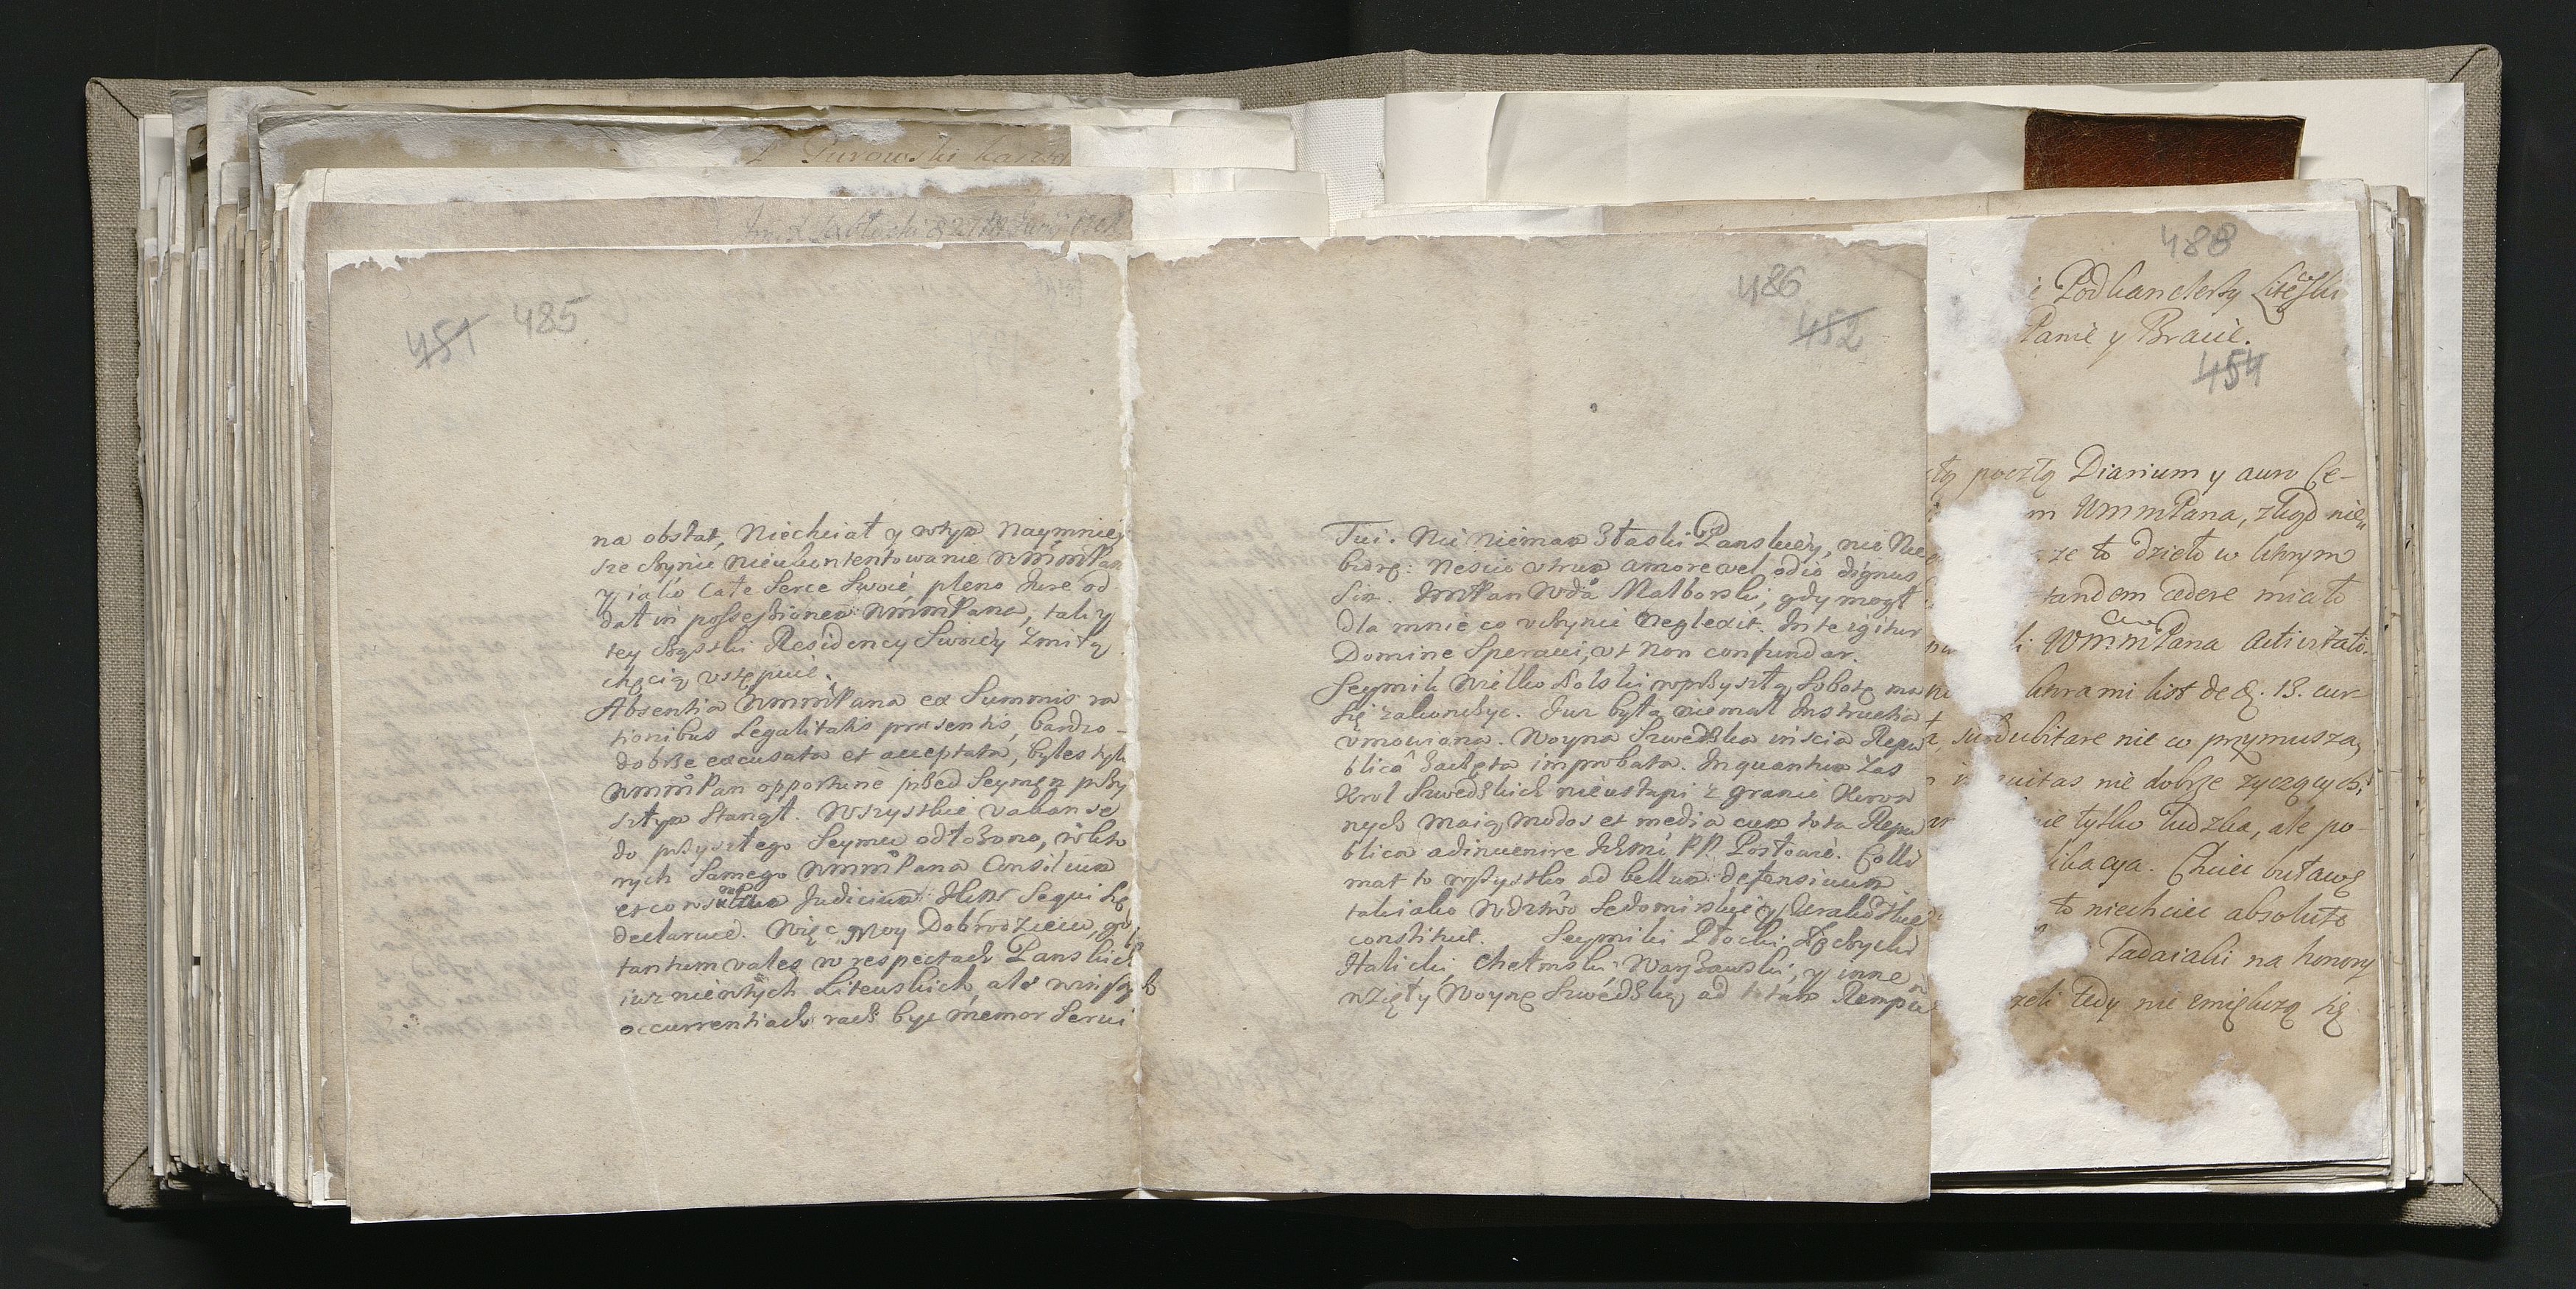 P Turowski
451 485
na obstat, Niechciał y wtym Naymniey
sze czynić Nieukontentowanie WMMPan
y iako całe Serce Swoie, pleno Jure od
dał in possessionem WMMPana, tak y
tey Residency Swoiey z miłą
chęcią vstępuie.
Absentia WMMPana ex Summis ra
tionibus Legalitatis praesentis, bardzo
dobrze excusata et acceptata, byles tylk
WMMPan opportune przed Seymem przy
sztym stanął. Wszystkie vakanse
do przyszłego Seymu odłożono, w kto
rych Samego WMMPana Consilium
et Judicium Sequi się
declaruie. Więc Moy Dobrodzieiu,
tantum vales w respectach Panskich
iuz nie wtych Litewskich, ale w inszych
occurrentiach racz byc memor Serui
486
452
Tui. Nic niemam z łaski Panskiey, nic Nie
biorę: Nescio vtrum amore vel odio dignus
Sim. JmPan Wda Malborski, gdy mogł
dla mnie co vczynić Neglexit. In te igitur
Domine Speraui, vt Non confundar.
Seymik Wielko Polski w przyszłą Sobotę ma
się zakonczyc. Juz była niemal Instructia
vmowiona. Woyna Szwedzka inscia Repu
blica zaczęta improbata. Inquantum zas
Krol Szwedzki nieustąpi z granic Koron
nych maią modos et media cum tota Repu
blica adinuenire Ichmć PP. Posłowie. Colli
mat to wszystko ad bellum defensiuum
tak iako Wdztwo Sedomirskie y Krakowskie
constituit. Seymiki Płocki, Łęczycki
Halicki, Chełmski, Warszawski, y inne
wzięły Woynę Szwedzką ad totam Rempu
488
i Podkanclerzy Litewski
Panie y Bracie.
454
tą pocztą Diarium y auro Ce-
m WMMPana, zkąd nie
ze to dzieło w ktorym
tandem cedere miało
WMMPana
ktorami list de d. 13. cur
dubitare nie co przymusza,
nie dobrze zyczących
nie tylko ludzka, ale po
likacya. Chciec buławę
to niechciec absolute
na honory
zeli tedy nie zmiękczą się